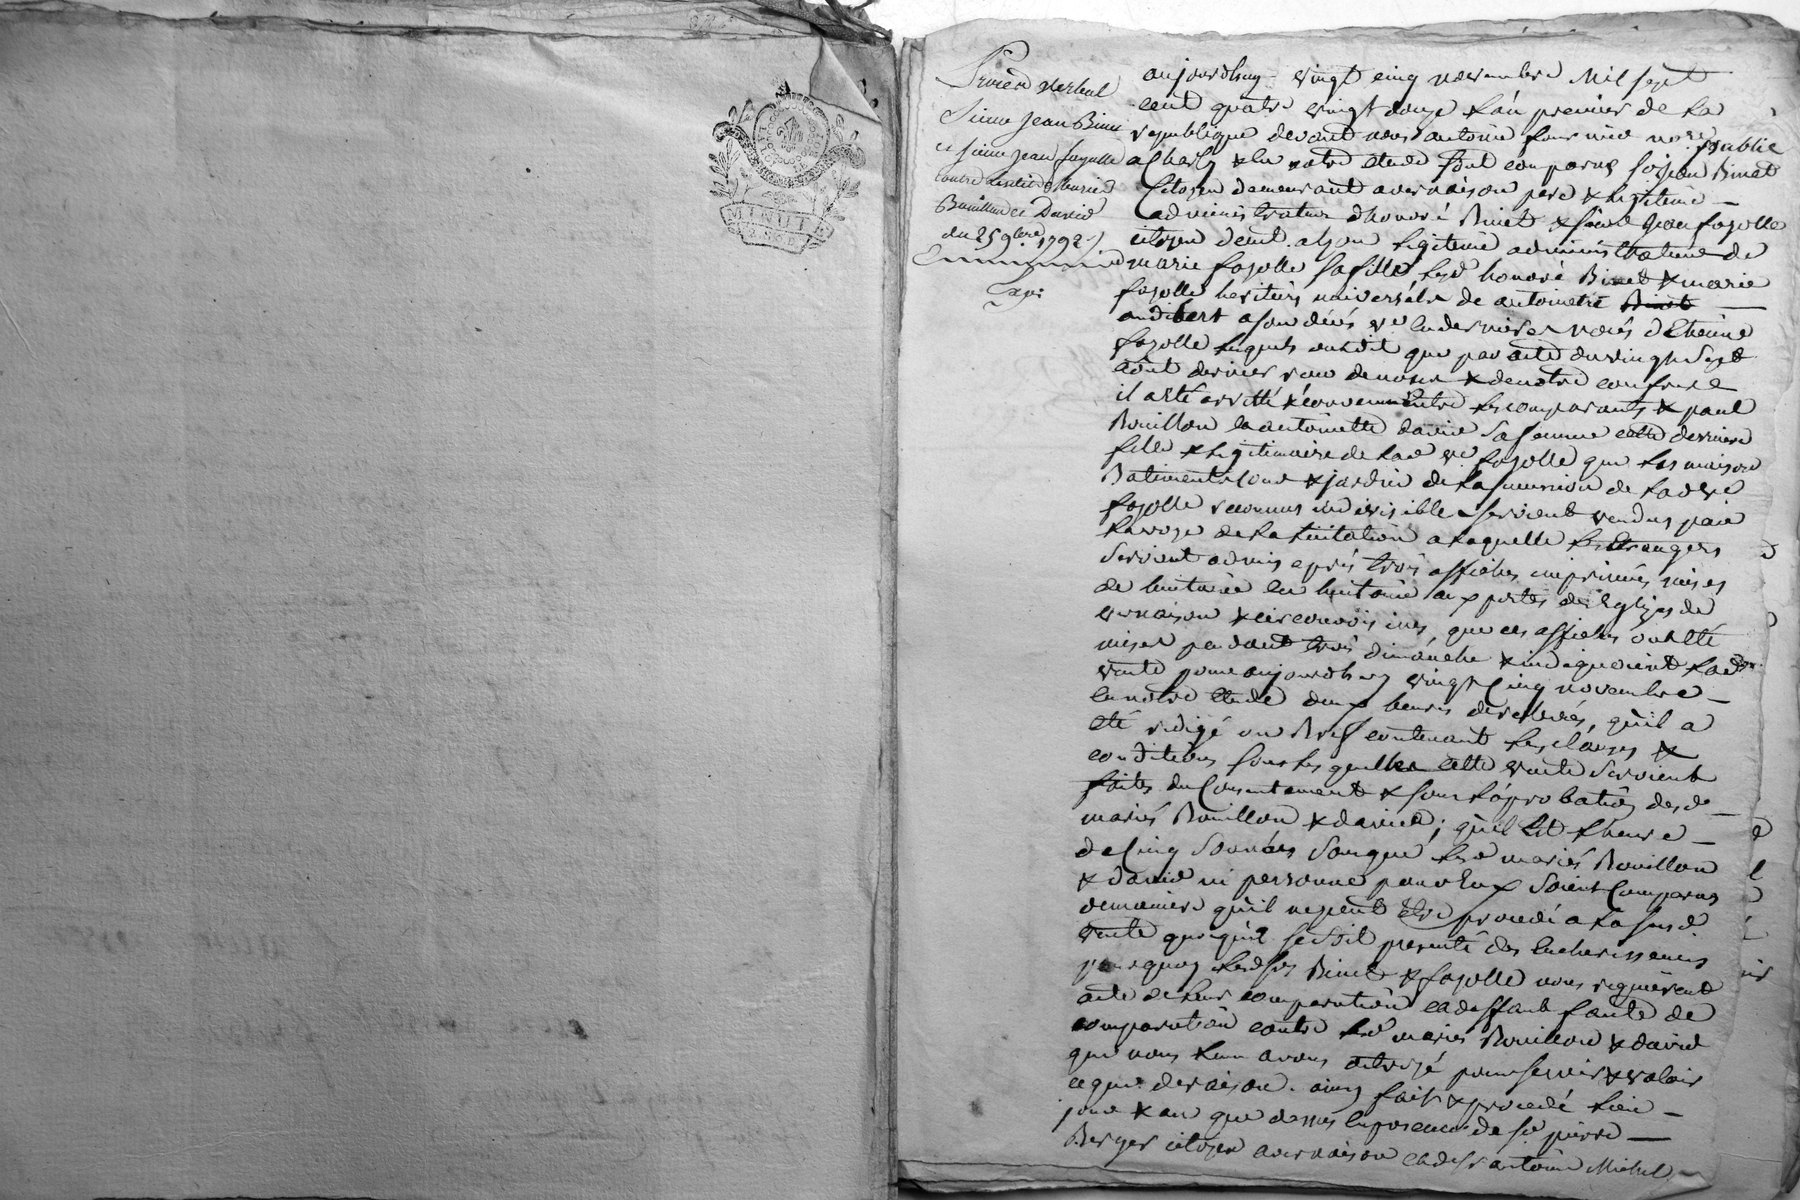 MINUTE
2 SOLS
Procès verbal
Sieur Jean Binet
et sieur jean fayolle
contre lesdits mariés
Bouillon et David
du 25 9bre 1792
Exp.
aujourdhuy vingt cinq novembre Mil sept
cent quatre vingt douze L'an premier de La
republique devant nous antoine fournier nore public
a Charly & En notre etude sont comparus Binet
Citoyen demeurant a vernaison pere & Legitime
administrateur d'honoré Binet & sieur jean fayolle
citoyen demt. a Legitime administrateur de
marie fayolle sa fille, Lesd honoré Binet & marie
fayolle heritiers universels de antoinette Binet
audibert a son décés ve En dernieres noces d'Etienne
fayolle Lesquels ont dit que par acte du vingt Sept
aout dernier recu de nous & de notre confrere
il a eté arretté & convenu Entre Les comparants & paul
Bouillon & antoinette david Sa femme cette derniere
fille & Legitimaire de Lad ve fayolle que Les maison
Batiments Cour & jardin de La succession de Lad ve
fayolle reconnus indivisibles seroient vendus par
La voye de La licitation a Laquelle Les Etrangers
Seroient admis aprés trois affiches imprimées mises
de huitaine En huitaine aux portes des Eglises de
vernaison & circonvoisines, que ces affiches ont Eté
mises pendant trois dimanche & indiquoient Lad
vente pour aujourdhuy vingt Cinq novembre
En notre Etude deux heures de relevée, qu'il a
Eté redigé un Bref contenant Les clauses &
conditions sous Lesquelles cette vente seroient
faites du Consentement & sous L'aprobation desd
mariés Bouillon & david; qu'il Est L'heure
de Cinq Sonnées Sans que Lesd mariés Bouillon
& david ni personne pour Eux Soient Comparus
demaniere qu'il ne peut Etre procedé a La susd
vente quoiqu'il se soit presenté des Encherisseurs
pourquoy Lesd srs Binet & fayolle nous requierent
acte de Leur comparution Et deffaut faute de
comparution contre Lesd mariés Bouillon & david
que nous Leur avons octroyé pour servir & valoir
ce que de raison. ainsy fait & procedé Lieu
jour & an que dessus En presence de sr pierre
Berger citoyen a vernaison Et de sr antoine Michel